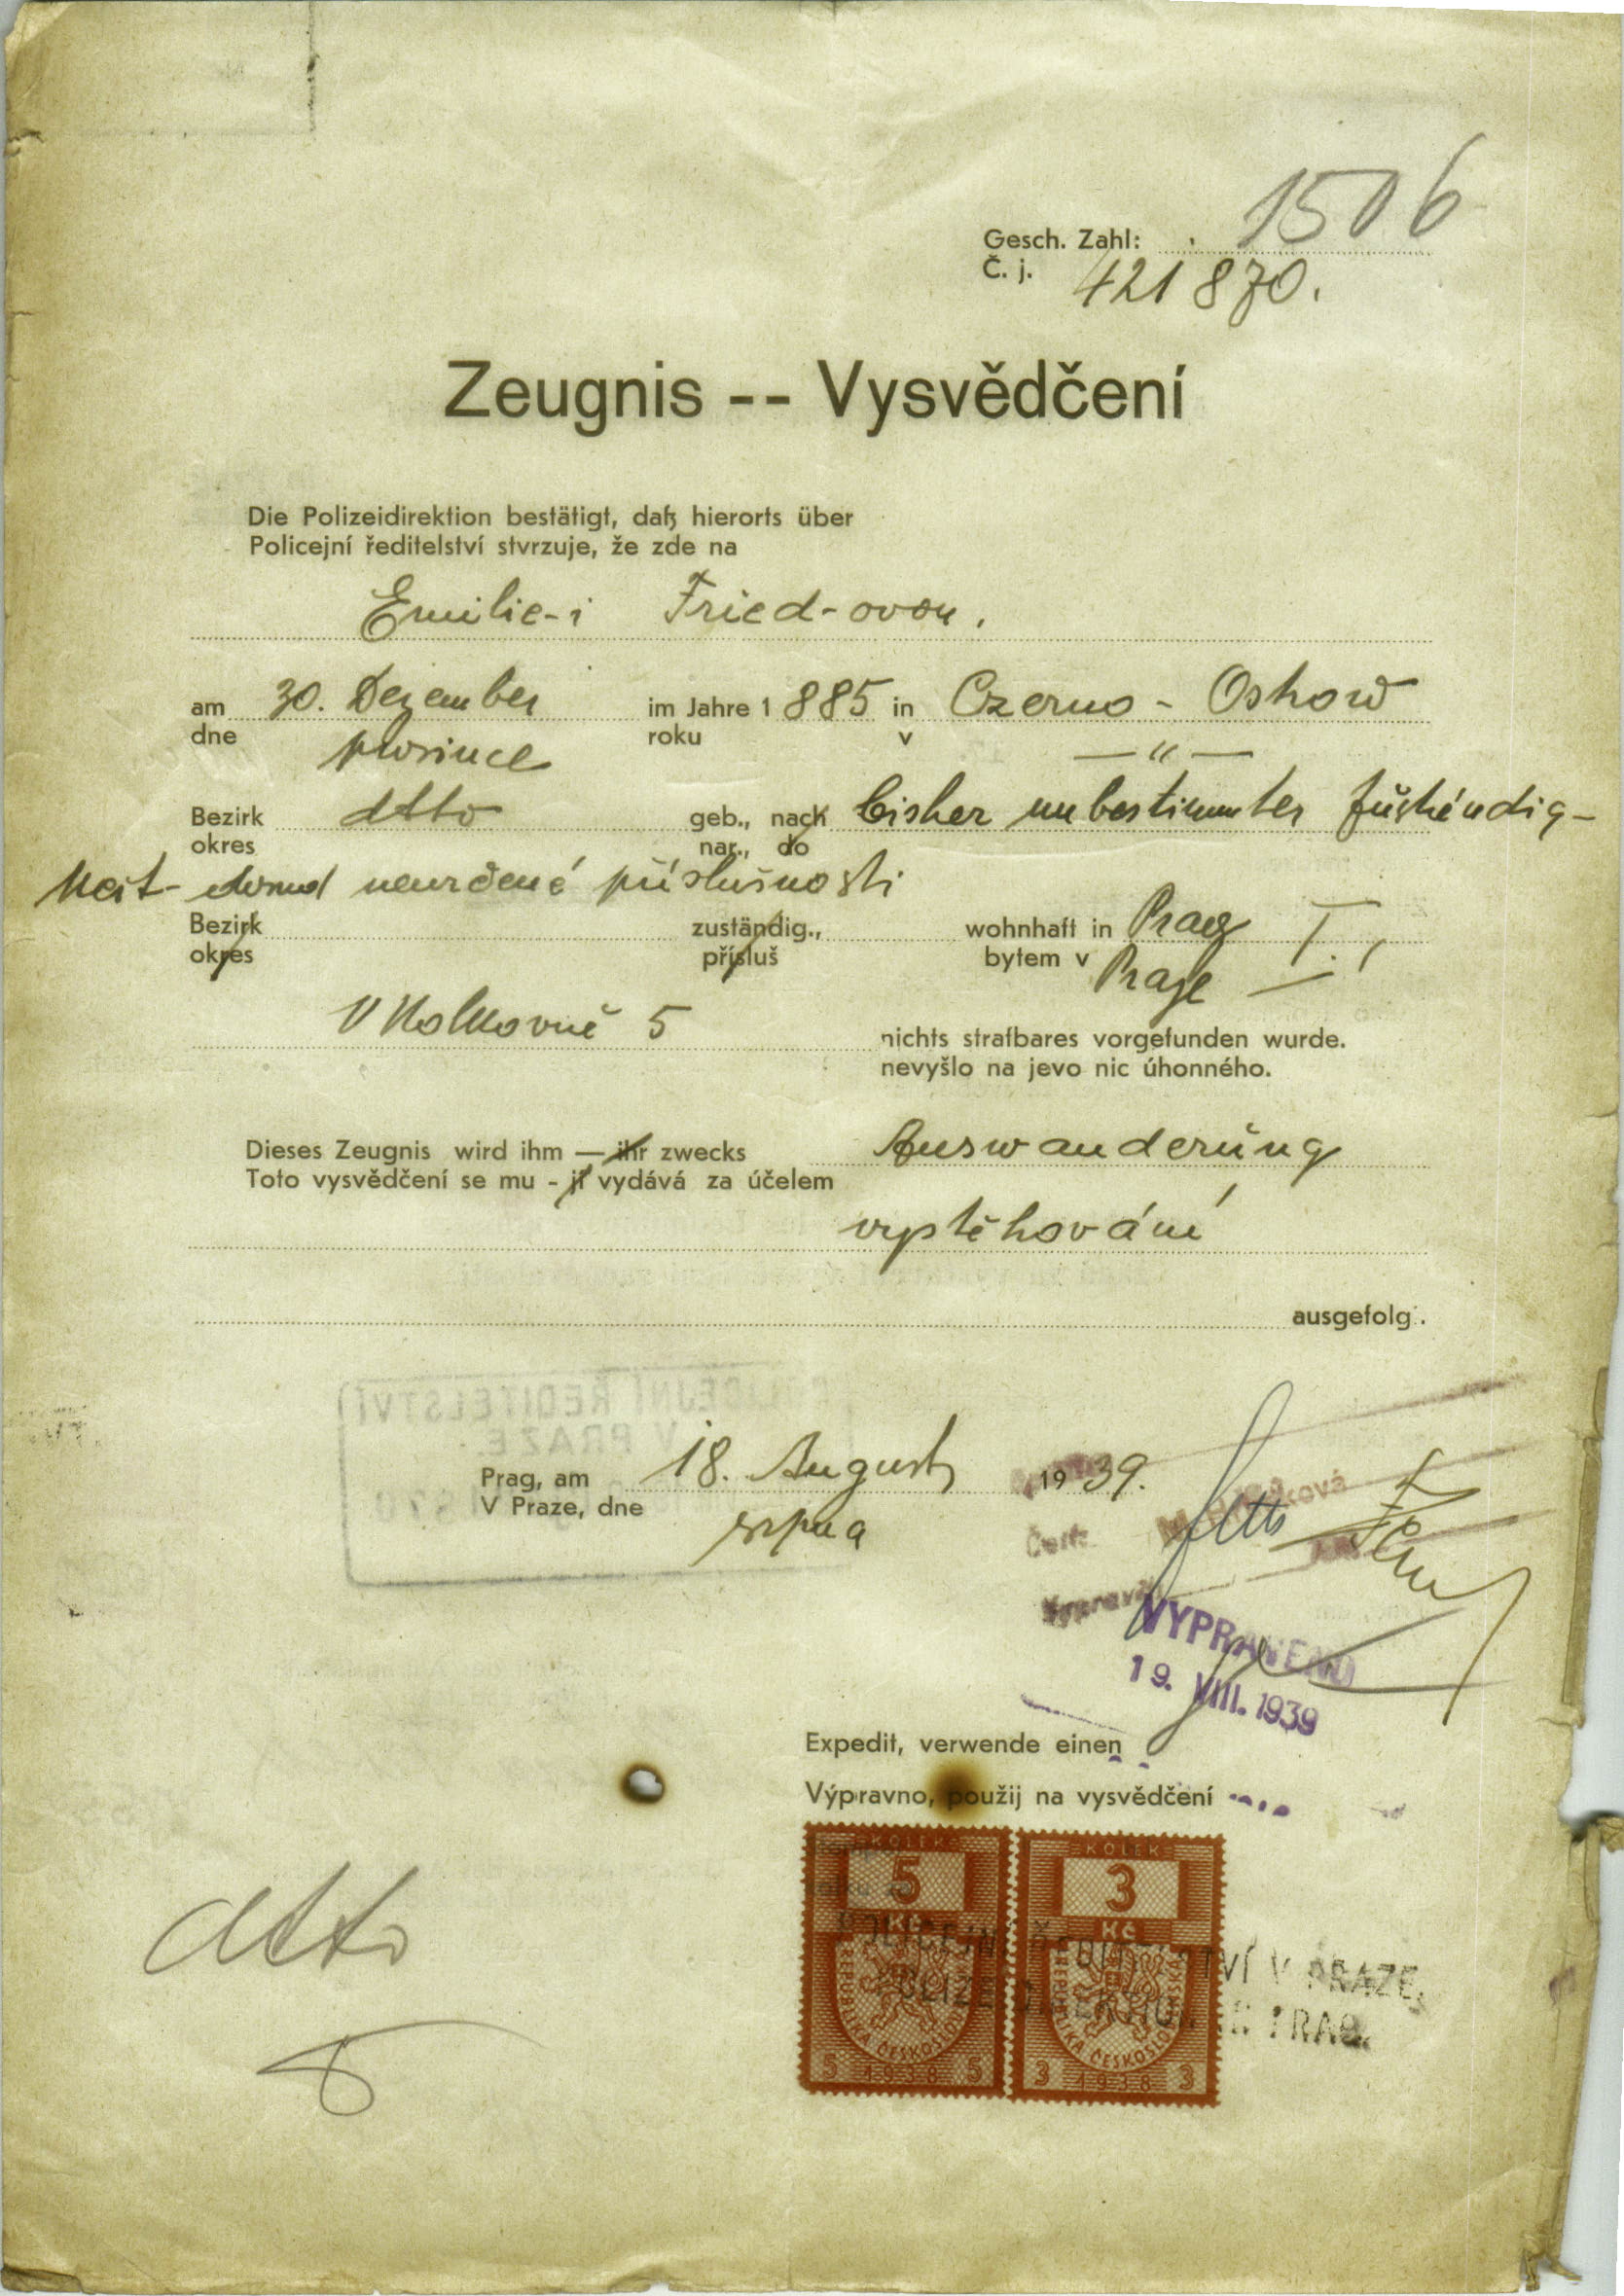 1506
Gesch. Zahl:
Č. j. 421870.
Zeugnis -- Vysvědčení
Die Polizeidirektion bestätigt, daß hierorts über
Policejní ředitelství stvrzuje, že zde na
Emilie-i Fried-ovou.
am 30. Dezember im Jahre 1 885 in Czerno - Oskow
dne prosince roku v — " —
Bezirk dtto geb., nach bisher unbestimmter Zuständig-
okres nar., do
keit - dosud neurčené příslušnosti
Bezirk zuständig., wohnhaft in Prag I.,
okres přísluš bytem v Praze —
V Kolkovně 5
nichts strafbares vorgefunden wurde.
nevyšlo na jevo nic úhonného.
Dieses Zeugnis wird ihm — ihr zwecks Auswanderung
Toto vysvědčení se mu - jí vydává za účelem
vystěhování
ausgefolg.
POLICEJNÍ ŘEDITELSTVÍ
V PRAZE
Prag, am 18. August 1939.
V Praze, dne srpna
VYPRAVENO
19. VIII. 1939
Expedit, verwende einen
Výpravno, použij na vysvědčení
KOLEK KOLEK
5 3
Kč Kč
REPUBLIKA ČESKOSLOVENSKÁ REPUBLIKA ČESKOSLOVENSKÁ
5 1938 5 3 1938 3
POLICEJNÍ ŘEDITELSTVÍ V PRAZE.
POLIZEIDIREKTION IN PRAG.
dtto